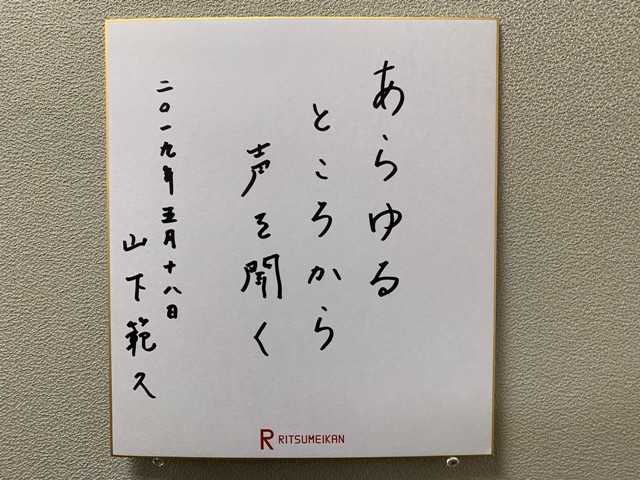 あらゆる
ところから
声を聞く
二〇一九年五月十八日
山下範久
R RITSUMEIKAN